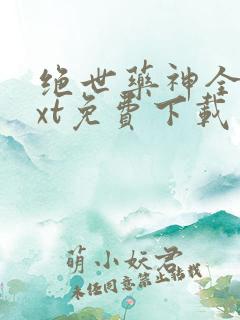 绝世药神全
xt免费下载
萌小妖君
未经同意禁止转载